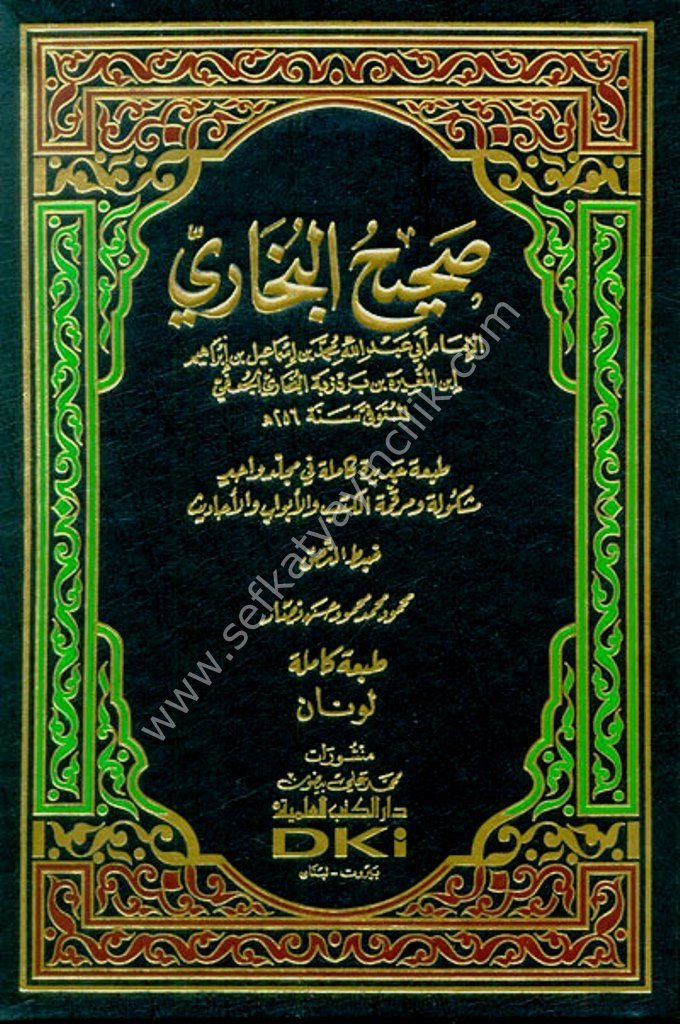 صَحِيحُ البُخَارِيّ
للإمام أبي عبد الله محمد بن إسماعيل بن إبراهيم
ابن المغيرة بن بردزبة البخاري الجعفي
المتوفى سنة ٢٥٦ هـ
طبعة جديدة كاملة في مجلد واحد
مشكولة ومرقمة الكتب والأبواب والأحاديث
ضبط النص
محمود محمد محمود حسن نصار
طبعة كاملة
لونان
منشورات
محمد علي بيضون
دار الكتب العلمية
DKi
بيروت - لبنان
www.sefkatyayincilik.com